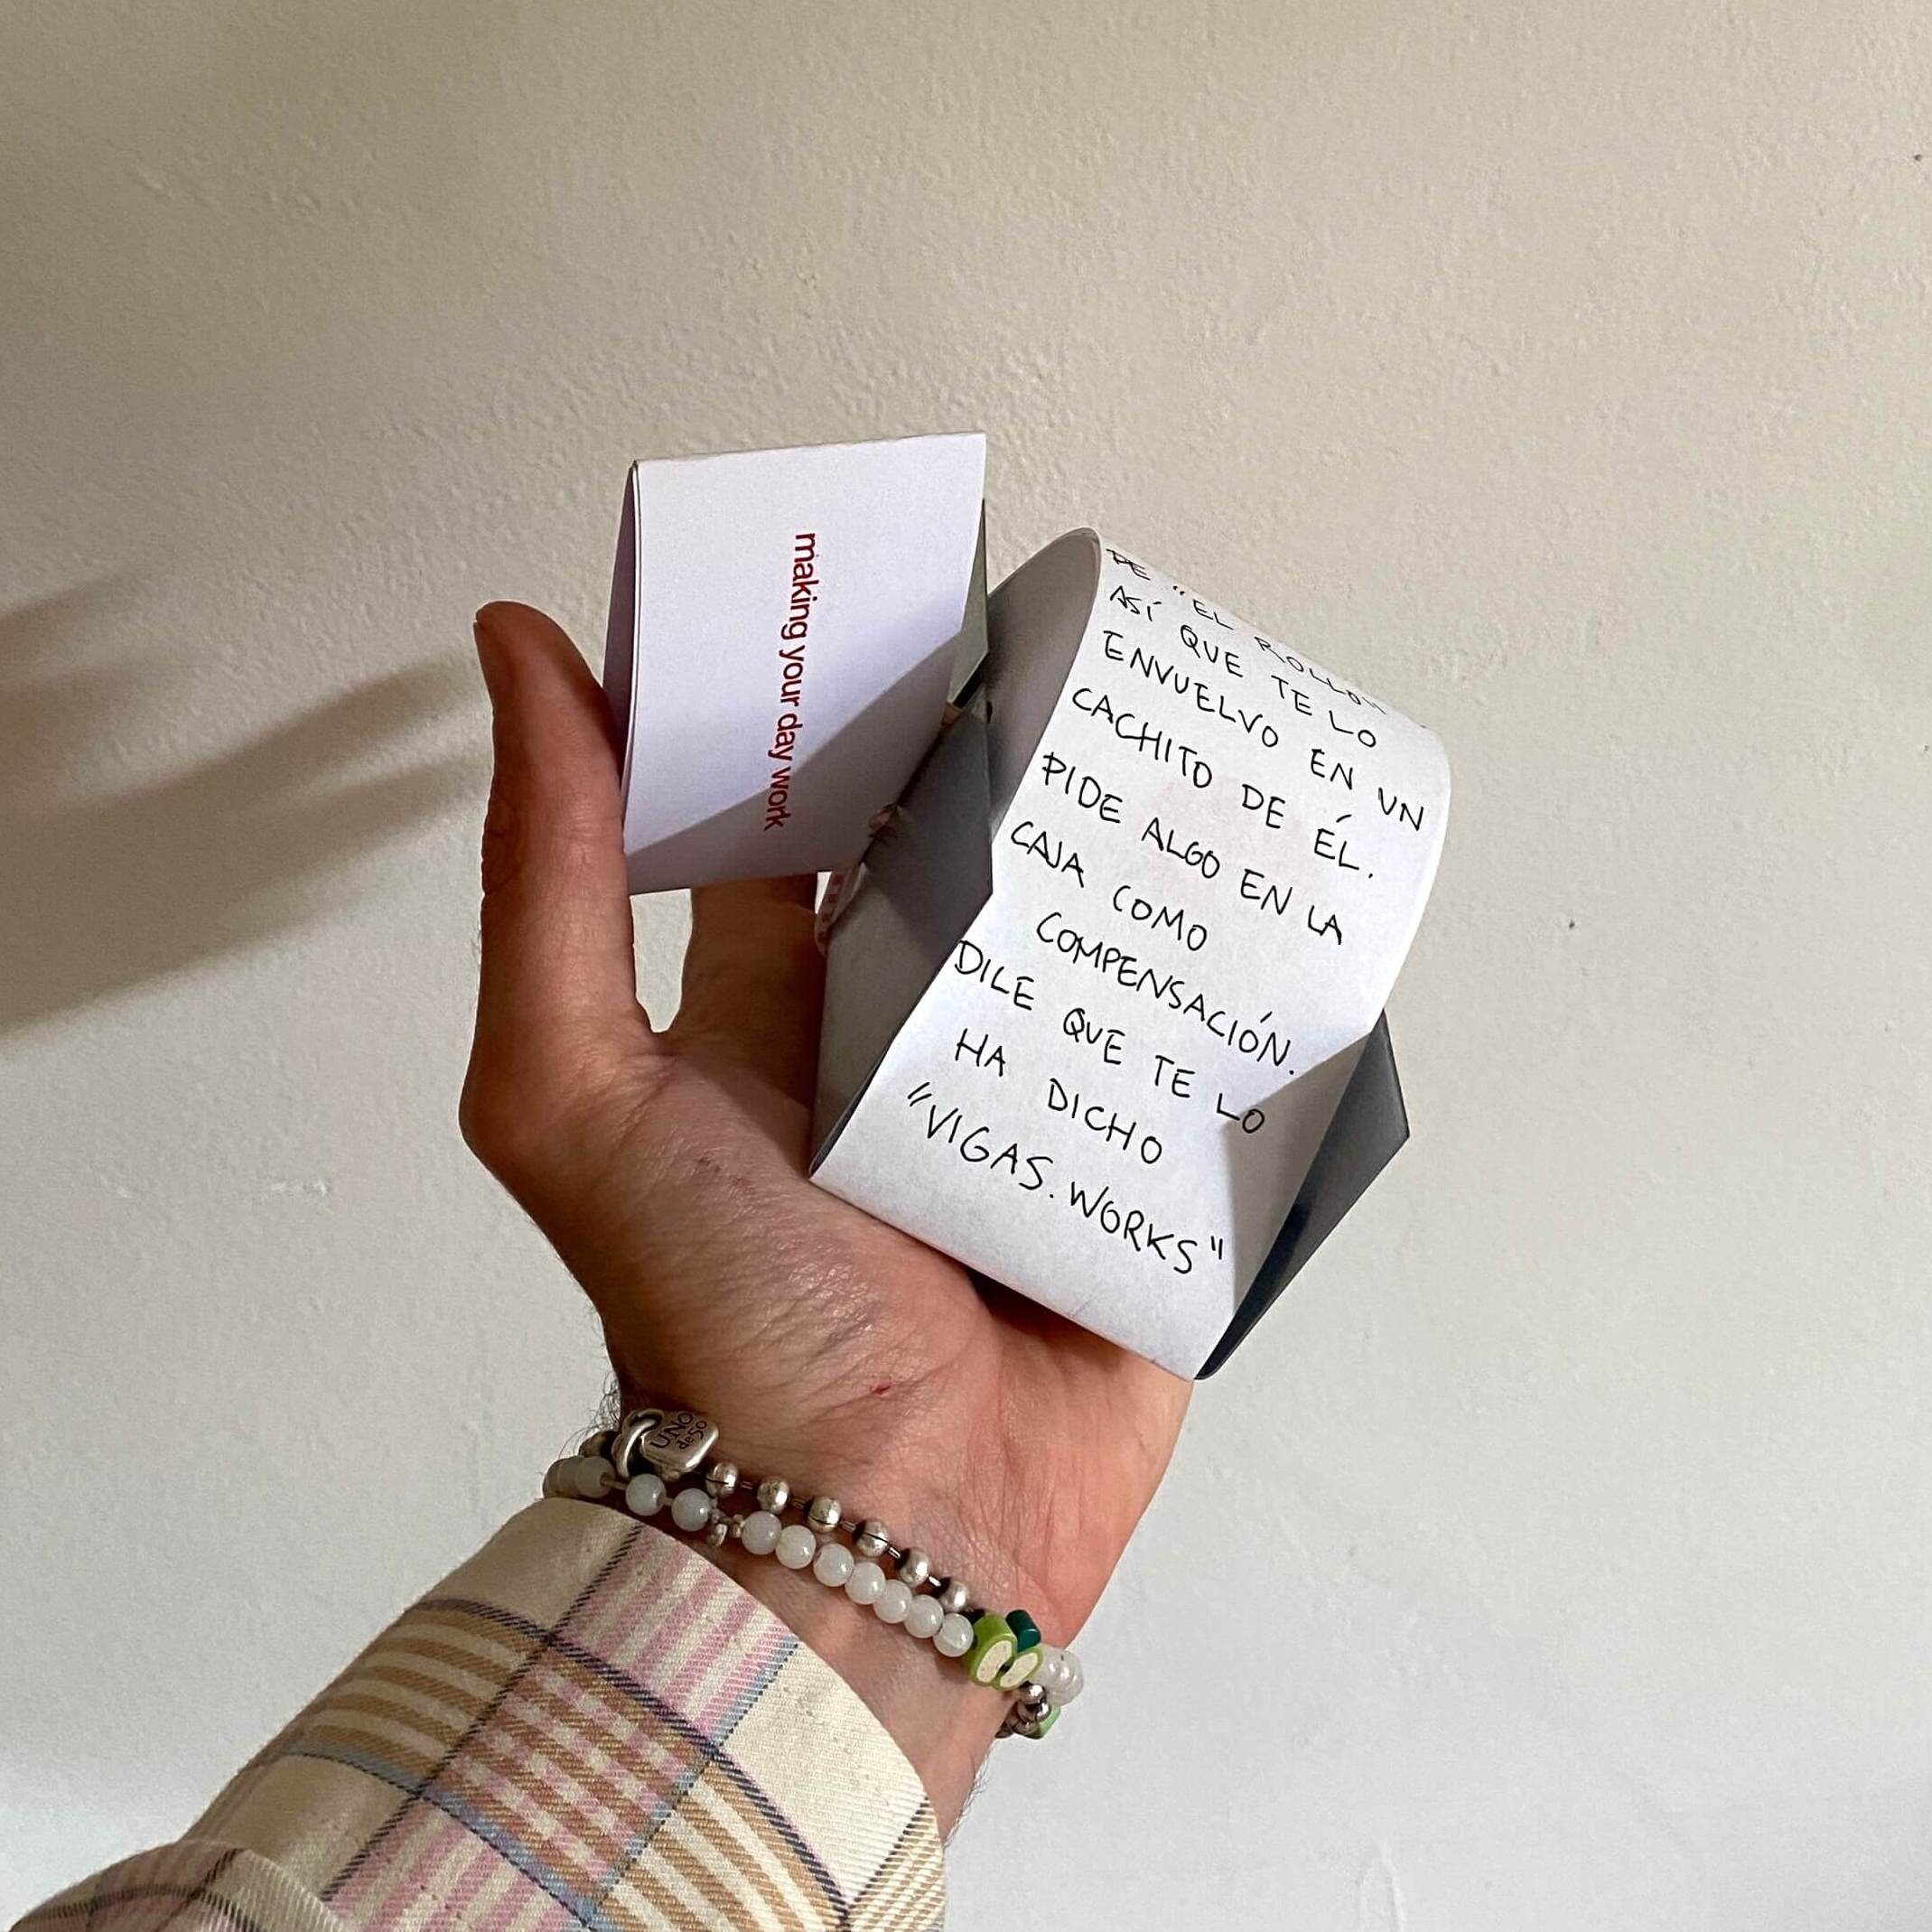 making your day work
DE "EL ROLLO"
ASÍ QUE TE LO
ENVUELVO EN UN
CACHITO DE ÉL.
PIDE ALGO EN LA
CAJA COMO
COMPENSACIÓN.
DILE QUE TE LO
HA DICHO
"VIGAS.WORKS"
UNO
de 50